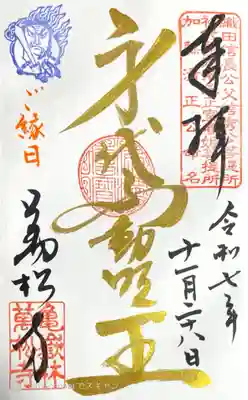 奉拝
織田信長公父信秀公菩提所
令和七年
十一月二十八日
身代不動明王
ご縁日
萬松寺
亀嶽林
萬松寺